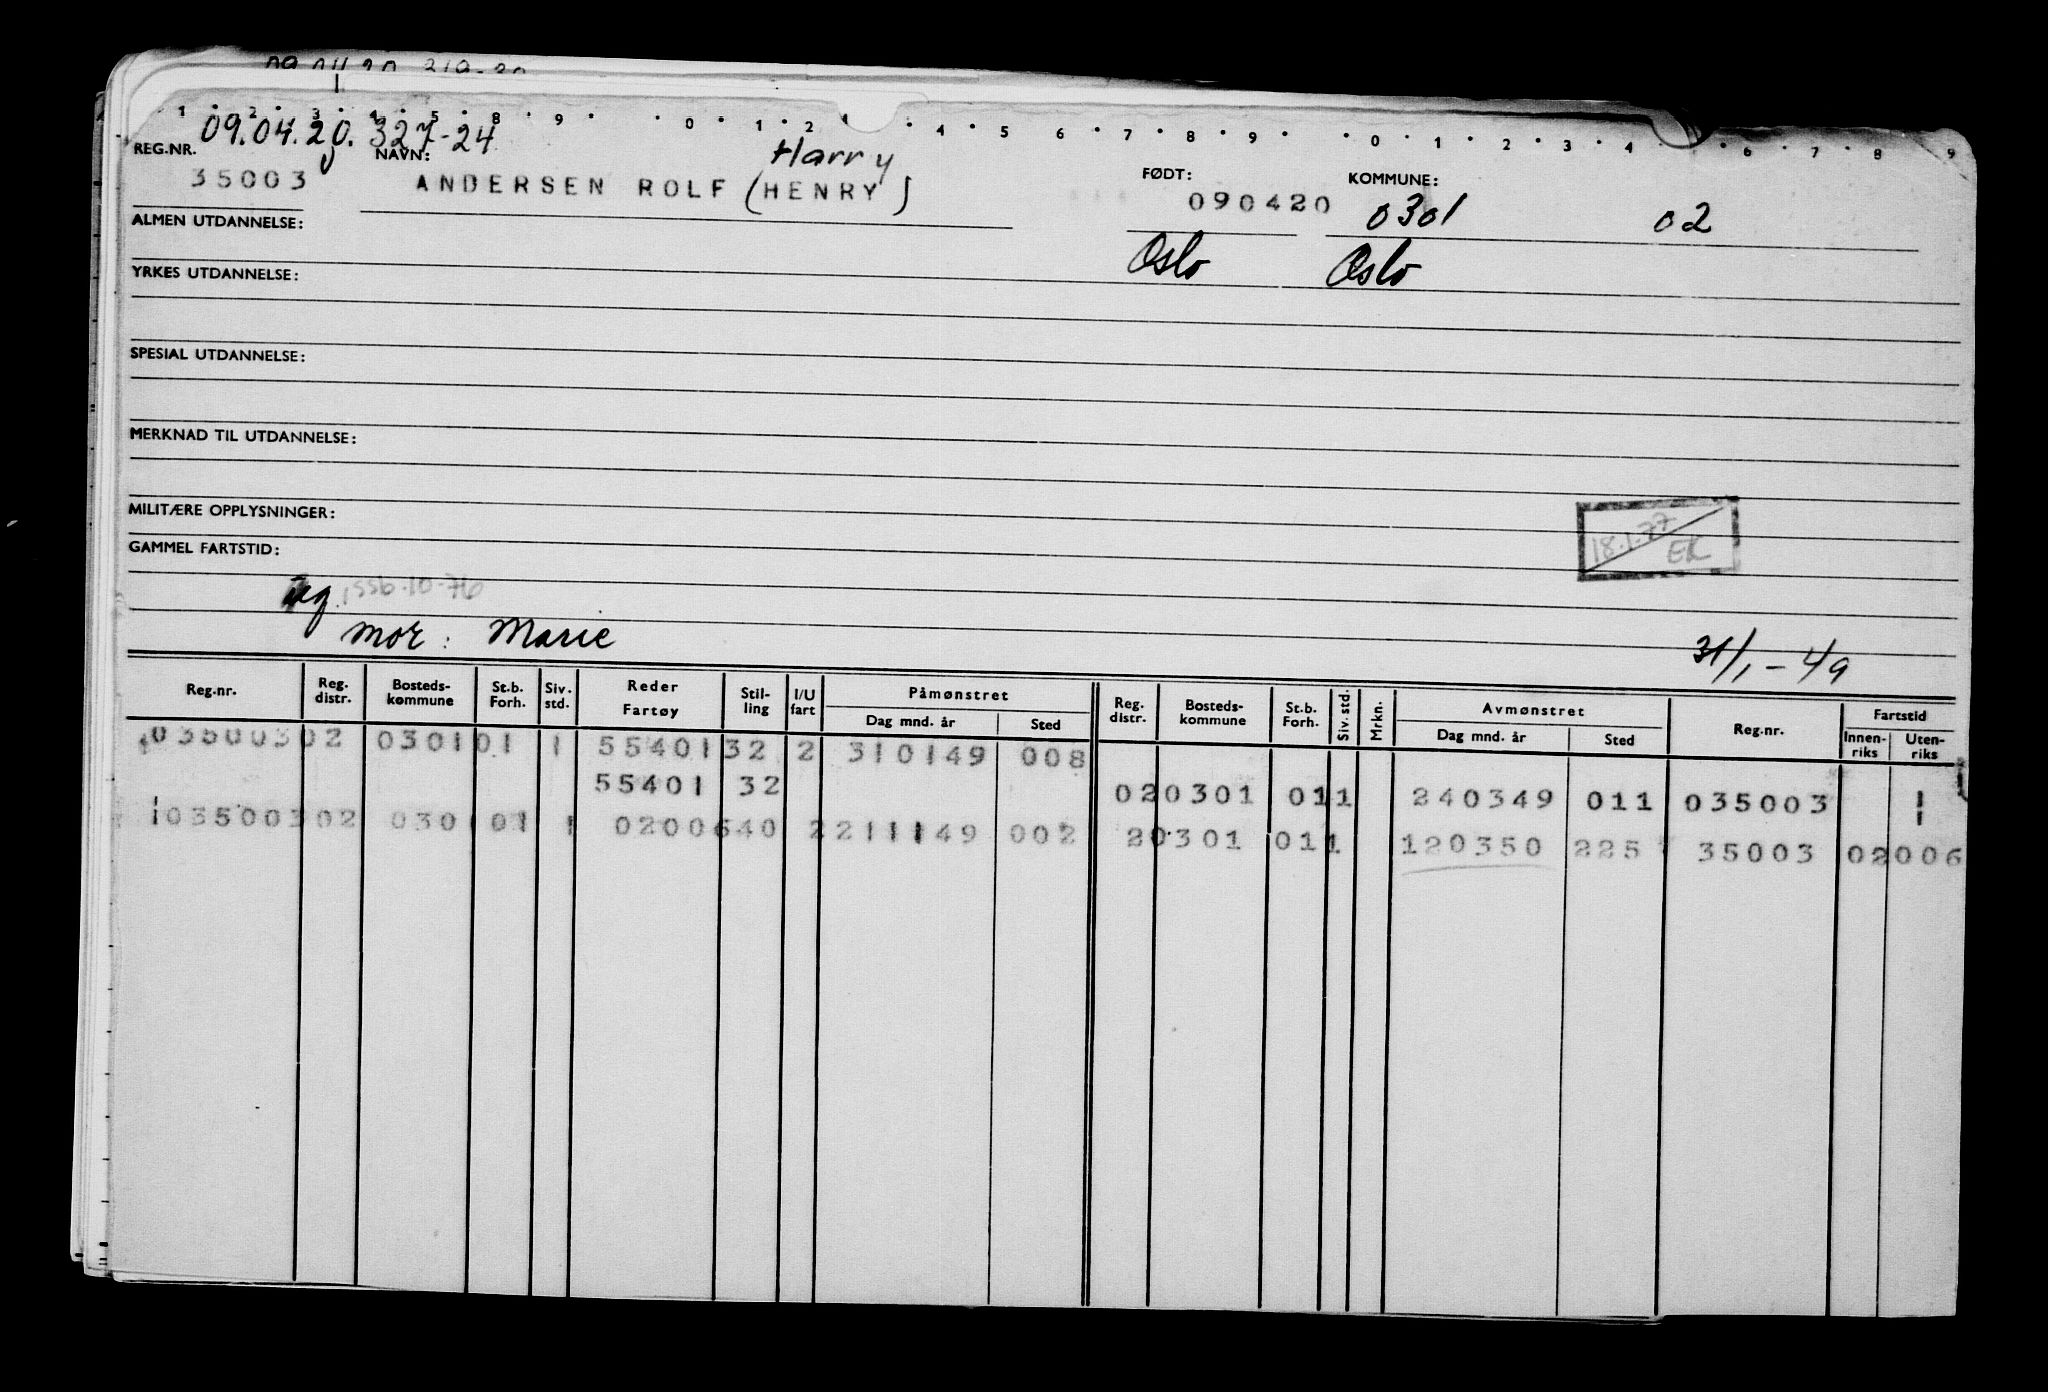 1 2 3 4 5 8 9 0 1 2 4 5 6 7 8 9 0 1 2 3 4 6 7 8 9
09.04.20. 327-24
Harry
REG.NR. NAVN: FØDT: KOMMUNE:
35003 ANDERSEN ROLF (HENRY) 090420 0301 02
ALMEN UTDANNELSE:
Oslo Oslo
YRKES UTDANNELSE:
SPESIAL UTDANNELSE:
MERKNAD TIL UTDANNELSE:
MILITÆRE OPPLYSNINGER:
18.1.77
EK
GAMMEL FARTSTID:
ssb.10-76
mor: Marie
31/1-49
Reg.nr. Reg. distr. Bosteds-kommune St.b. Forh. Siv. std. Reder Fartøy Stil-ling I/U fart Påmønstret Dag mnd. år Sted Reg. distr. Bosteds-kommune St.b. Forh. Siv. std. Mrkn. Avmønstret Dag mnd. år Sted Reg.nr. Fartstid Innen-riks Uten-riks
03500302 030101 1 5540132 2 310149 008
55401 32 020301 011 240349 011 035003 1
103500302 030101 1 0200640 2211149 002 20301 011 120350 225 35003 02006